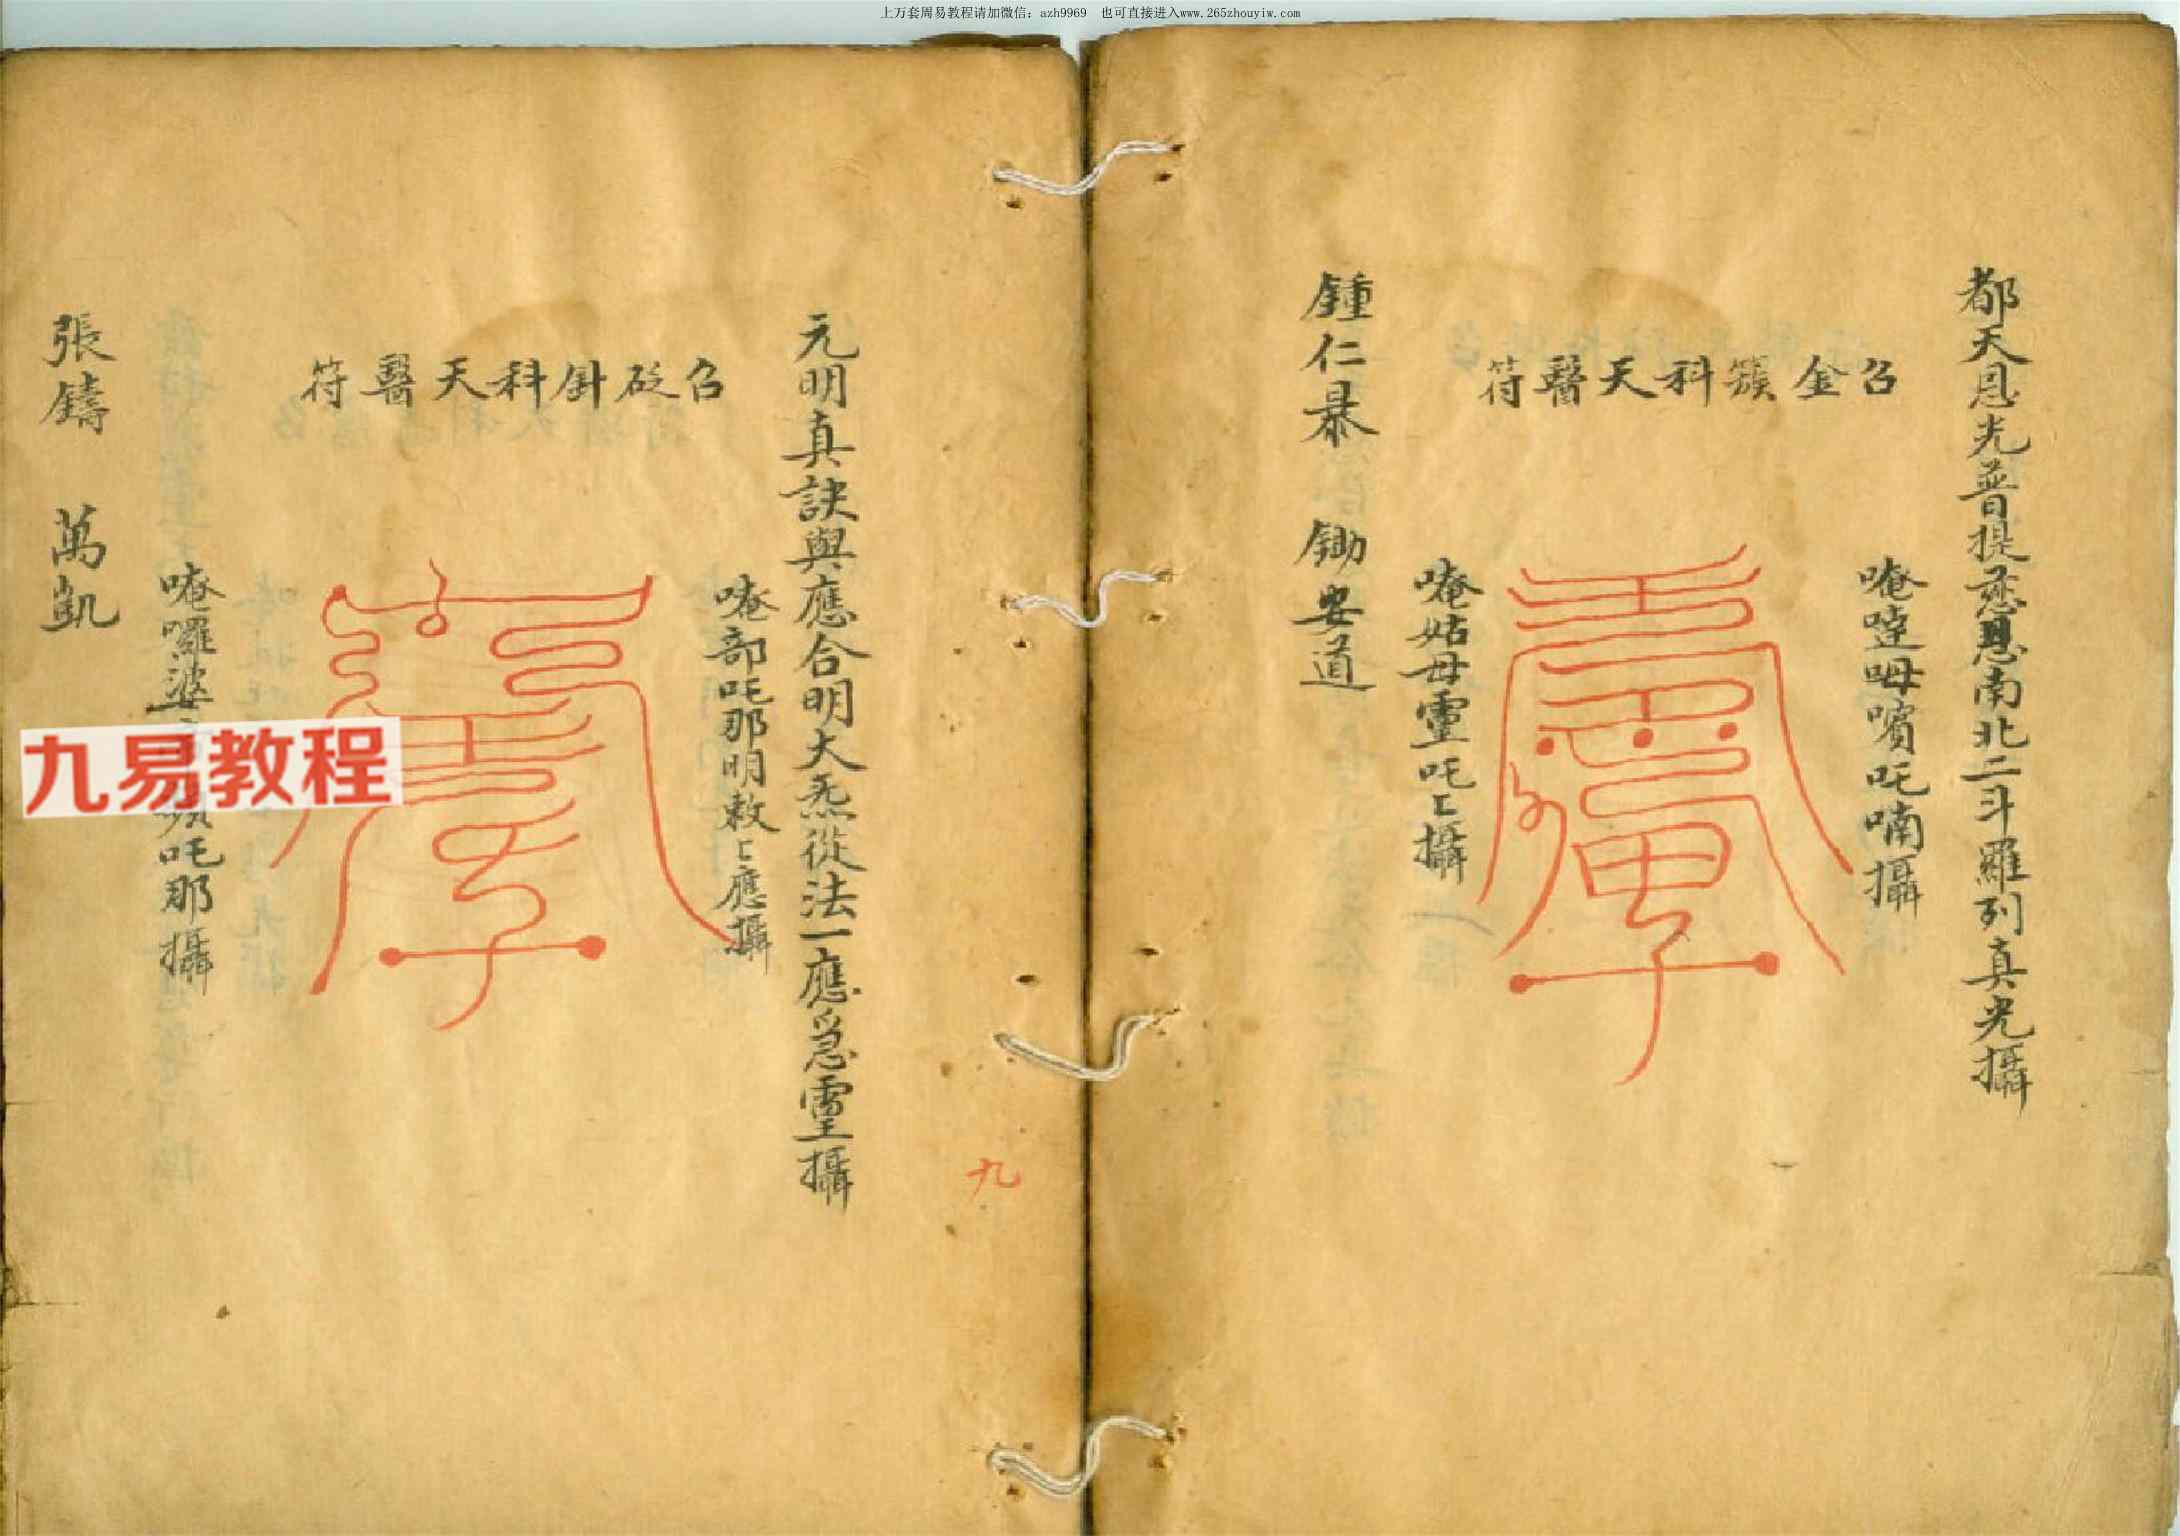 上万套周易教程请加微信：azh9969 也可直接进入www.265zhouyiw.com
都天恩光普提慈恩南北二斗羅列真光攝
召金簇科天醫符
唵㖶呣嚬吒喃攝
唵姑母靈吒〻攝
鍾仁暴 鋤安道
元明真訣與應合明大炁從法一應急靈攝
召砭針科天醫符
唵部吒那明敕〻應攝
唵囉婆 吒那攝
張鑄 萬凱
九
九易教程